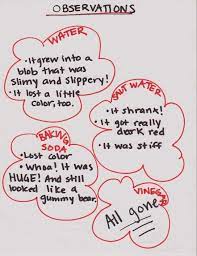 OBSERVATIONS
WATER
• It grew into a
blob that was
slimy and slippery!
• It lost a little
color, too.
SALT WATER
• It shrank!
• It got really
dark red
• It was stiff
BAKING
SODA
• Lost color
• Whoa! It was
HUGE! And still
looked like a
gummy bear.
VINEGAR
All gone